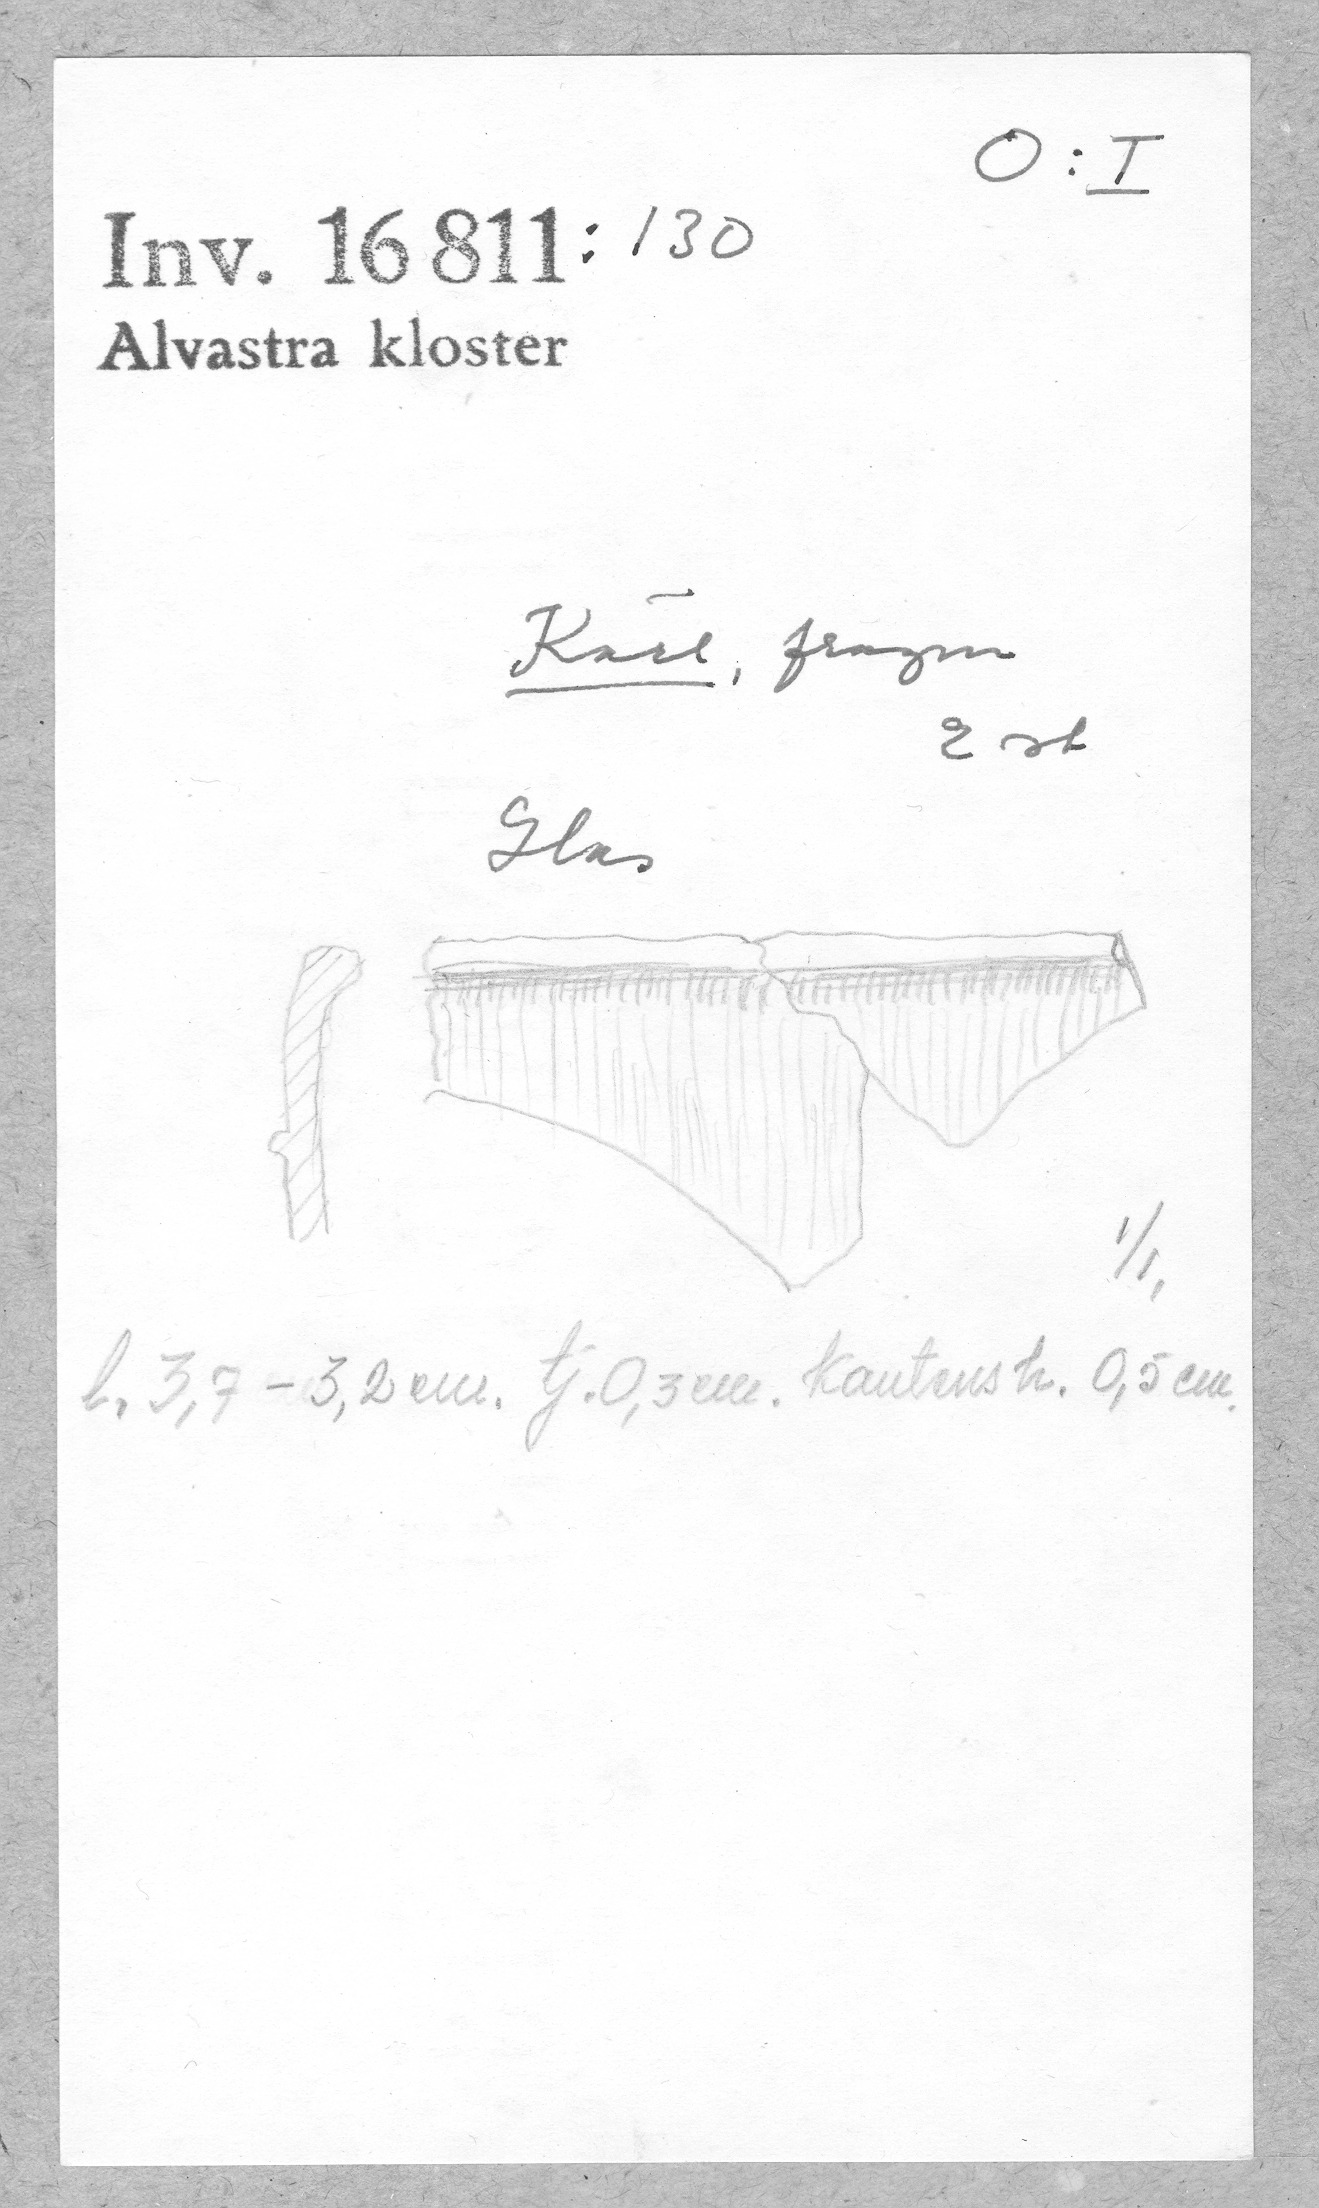 O : I
Inv. 16 811 : 130
Alvastra kloster
Kärl, fragm
2 st
Glas
1/1.
l. 3,7 - 3,2 cm. tj. 0,3 cm. Kantens h. 0,5 cm.